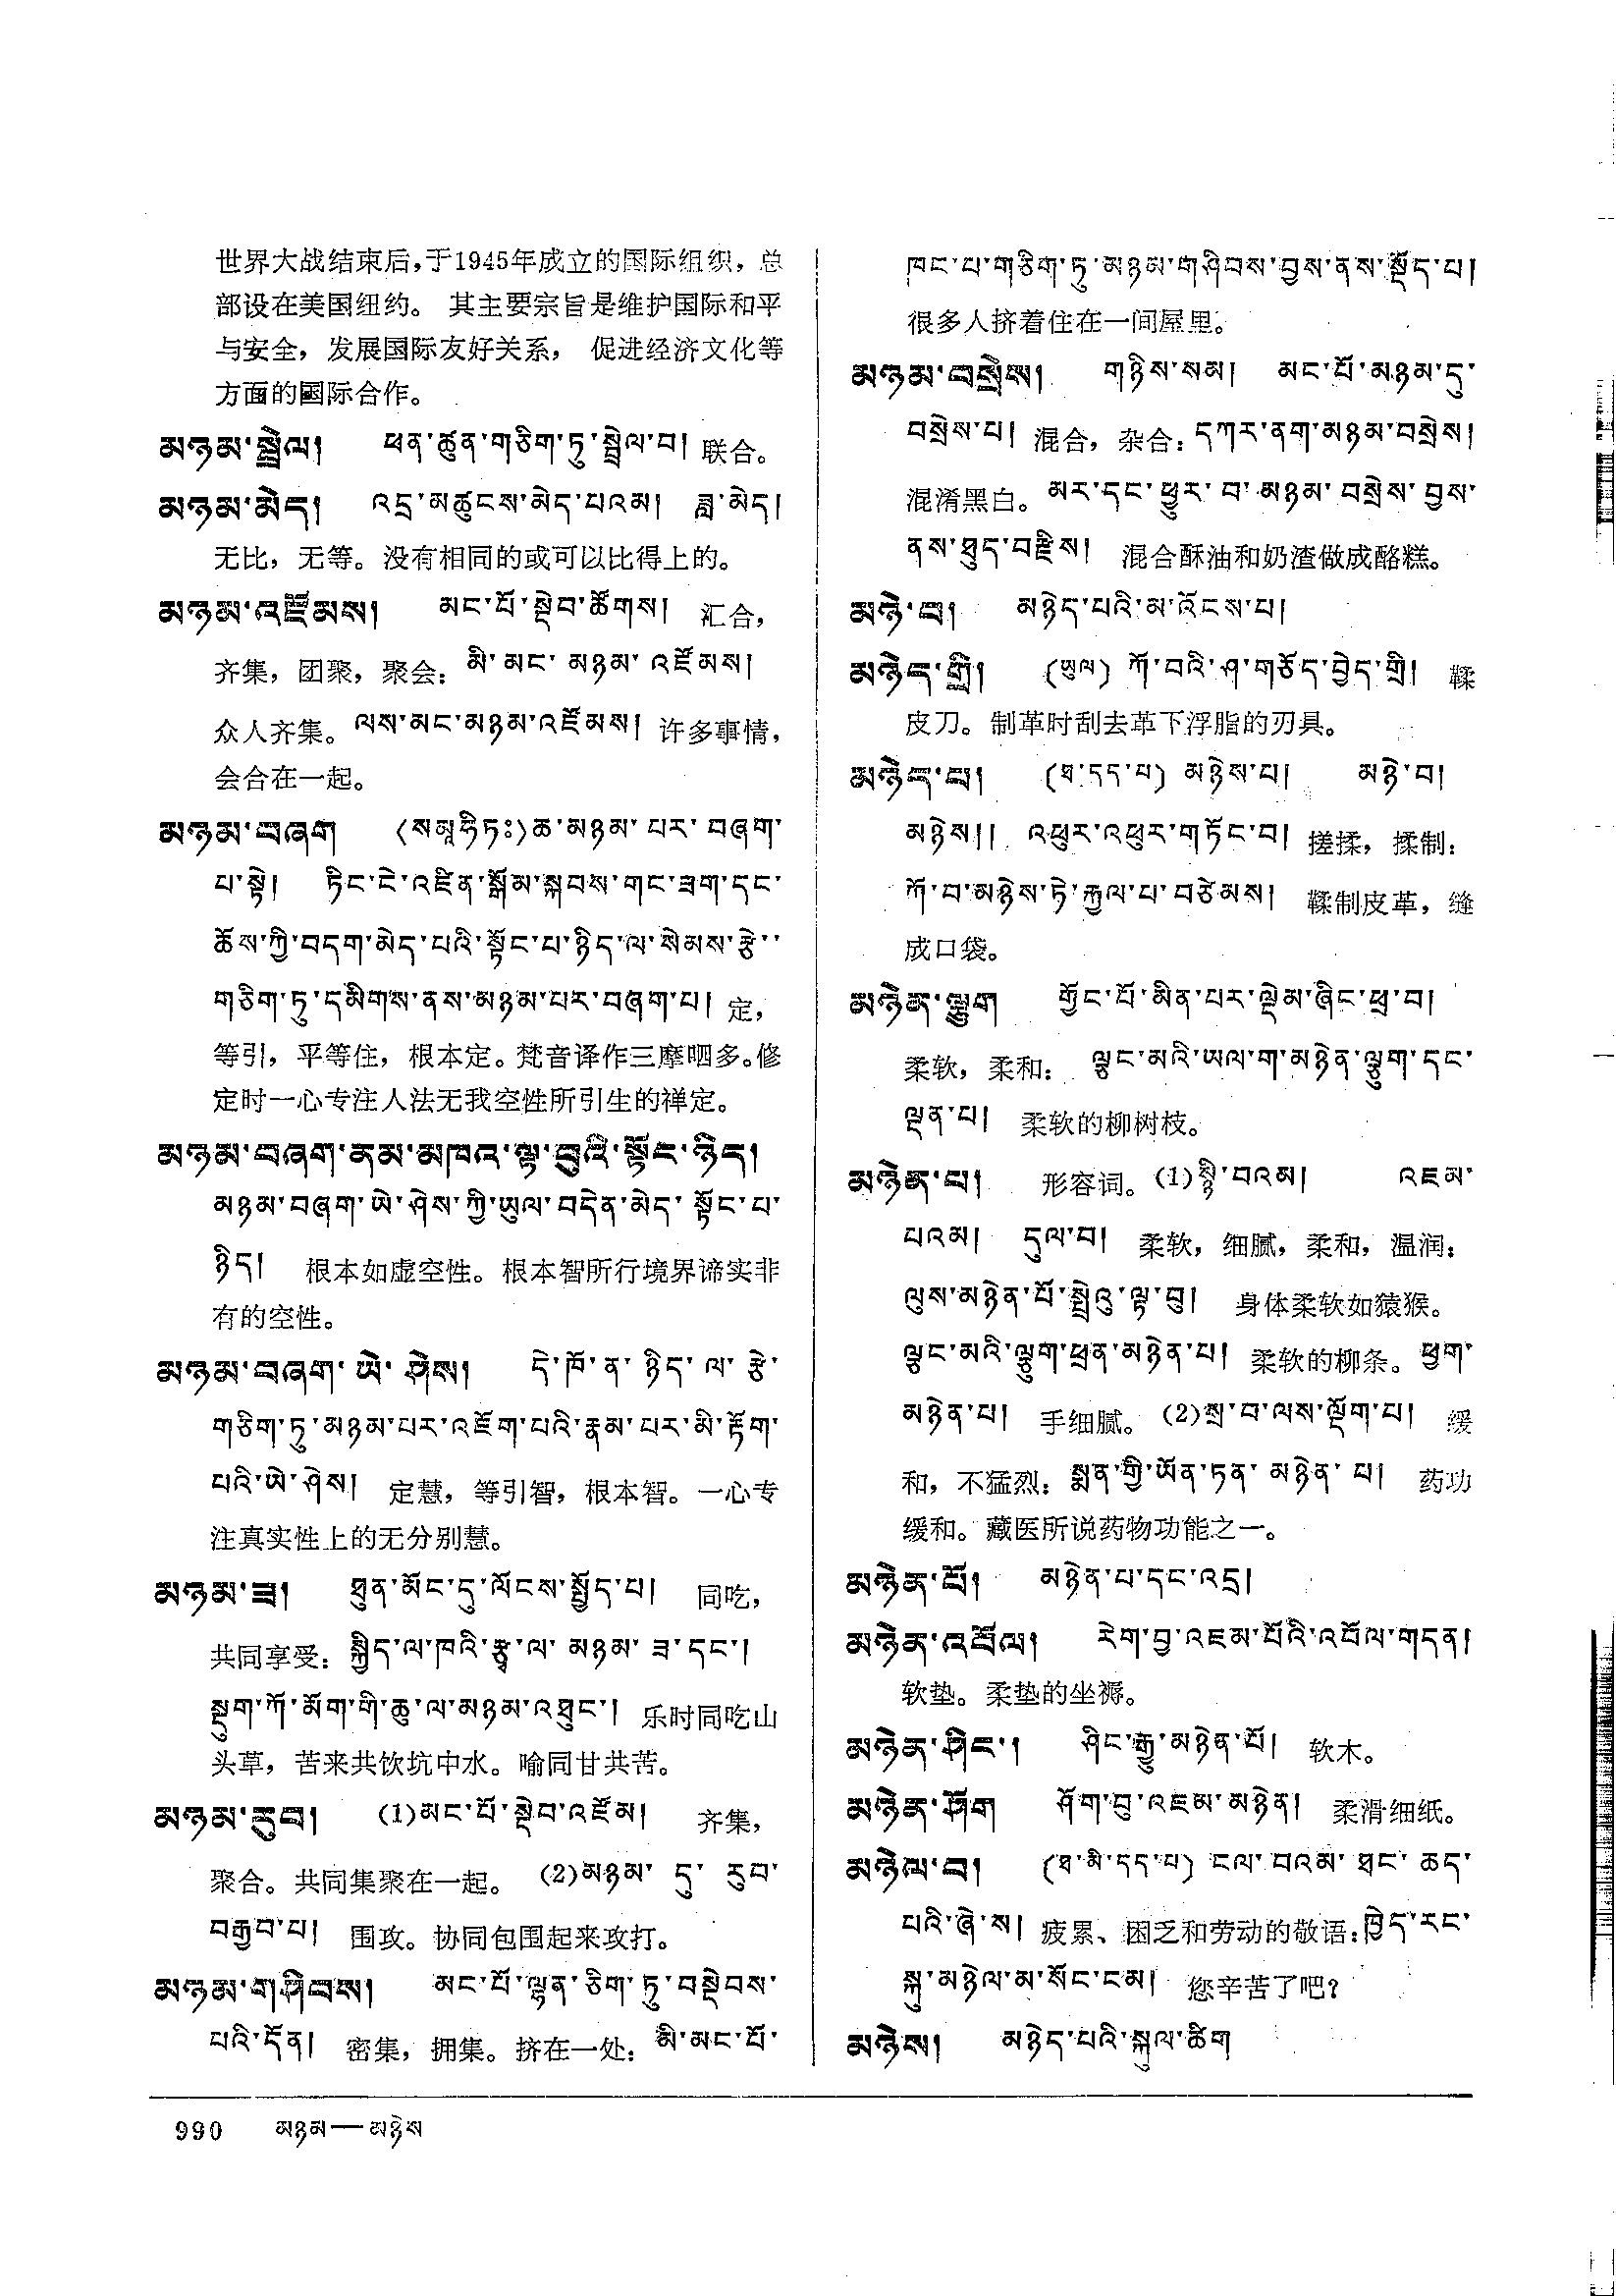 世界大战结束后,于1945年成立的国际组织，总
部设在美国纽约。 其主要宗旨是维护国际和平
与安全，发展国际友好关系， 促进经济文化等
方面的国际合作。
མཉམ་སྦྲེལ། ཕན་ཚུན་གཅིག་ཏུ་སྦྲེལ་བ། 联合。
མཉམ་མེད། འདྲ་མཚུངས་མེད་པའམ། ཟླ་མེད།
无比，无等。没有相同的或可以比得上的。
མཉམ་འཛོམས། མང་པོ་སྡེབ་ཚོགས། 汇合，
齐集，团聚，聚会：མི་མང་མཉམ་འཛོམས།
众人齐集。ལས་མང་མཉམ་འཛོམས། 许多事情，
会合在一起。
མཉམ་བཞག (སམཱཧིཏཿ)ཆ་མཉམ་པར་བཞག་
པ་སྟེ། ཏིང་ངེ་འཛིན་སྒོམ་སྐབས་གང་ཟག་དང་
ཆོས་ཀྱི་བདག་མེད་པའི་སྟོང་པ་ཉིད་ལ་སེམས་རྩེ་་
གཅིག་ཏུ་དམིགས་ནས་མཉམ་པར་བཞག་པ། 定，
等引，平等住，根本定。梵音译作三摩呬多。修
定时一心专注人法无我空性所引生的禅定。
མཉམ་བཞག་ནམ་མཁའ་ལྟ་བུའི་སྟོང་ཉིད།
མཉམ་བཞག་ཡེ་ཤེས་ཀྱི་ཡུལ་བདེན་མེད་སྟོང་པ་
ཉིད། 根本如虚空性。根本智所行境界谛实非
有的空性。
མཉམ་བཞག་ཡེ་ཤེས། དེ་ཁོ་ན་ཉིད་ལ་རྩེ་
གཅིག་ཏུ་མཉམ་པར་འཇོག་པའི་རྣམ་པར་མི་རྟོག་
པའི་ཡེ་ཤེས། 定慧，等引智，根本智。一心专
注真实性上的无分别慧。
མཉམ་ཟ། ཐུན་མོང་དུ་ལོངས་སྤྱོད་པ། 同吃，
共同享受：སྐྱིད་ལ་ཁའི་རྩྭ་ལ་མཉམ་ཟ་དང་།
སྡུག་ཀོ་མོག་གི་ཆུ་ལ་མཉམ་འཐུང་། 乐时同吃山
头草，苦来共饮坑中水。喻同甘共苦。
མཉམ་རུབ། (1)མང་པོ་སྡེབ་འཛོམ། 齐集，
聚合。共同集聚在一起。 (2)མཉམ་དུ་རུབ་
བརྒྱབ་པ། 围攻。协同包围起来攻打。
མཉམ་གཤིབས། མང་པོ་ལྷན་ཅིག་ཏུ་བསྡེབས་
པའི་དོན། 密集，拥集。挤在一处：མི་མང་པོ་
ཁང་པ་གཅིག་ཏུ་མཉམ་གཤིབས་བྱས་ནས་སྡོད་པ།
很多人挤着住在一间屋里。
མཉམ་བསྲེས། གཉིས་སམ། མང་པོ་མཉམ་དུ་
བསྲེས་པ། 混合，杂合：དཀར་ནག་མཉམ་བསྲེས།
混淆黑白。མར་དང་ཕྱུར་བ་མཉམ་བསྲེས་བྱས་
ནས་ཐུད་བརྫིས། 混合酥油和奶渣做成酪糕。
མཉེ་བ། མཉེད་པའི་མ་འོངས་པ།
མཉེད་གྲི། (ཡུལ) ཀོ་བའི་ཤ་གཅོད་བྱེད་གྲི། 鞣
皮刀。制革时刮去革下浮脂的刃具。
མཉེད་པ། (ཐ་དད་པ) མཉེས་པ། མཉེ་བ།
མཉེས།། འཕུར་འཕུར་གཏོང་བ། 搓揉，揉制：
ཀོ་བ་མཉེས་ཏེ་རྐྱལ་པ་བཙེམས། 鞣制皮革，缝
成口袋。
མཉེན་ལྕུག གྱོང་པོ་མིན་པར་ལྡེམ་ཞིང་ཕྲ་བ།
柔软，柔和： ལྕང་མའི་ཡལ་ག་མཉེན་ལྕུག་དང་
ལྡན་པ། 柔软的柳树枝。
མཉེན་པ། 形容词。(1)སྙི་བའམ། འཇམ་
པའམ། དུལ་བ། 柔软，细腻，柔和，温润：
ལུས་མཉེན་པོ་སྤྲེའུ་ལྟ་བུ། 身体柔软如猿猴。
ལྕང་མའི་ལྕུག་ཕྲན་མཉེན་པ། 柔软的柳条。ཕྱག་
མཉེན་པ། 手细腻。(2)སྲ་བ་ལས་ལྡོག་པ། 缓
和，不猛烈：སྨན་གྱི་ཡོན་ཏན་མཉེན་པ། 药功
缓和。藏医所说药物功能之一。
མཉེན་པོ། མཉེན་པ་དང་འདྲ།
མཉེན་འབོལ། རེག་བྱ་འཇམ་པོའི་འབོལ་གདན།
软垫。柔垫的坐褥。
མཉེན་ཤིང་། ཤིང་རྒྱུ་མཉེན་པོ། 软木。
མཉེན་ཤོག ཤོག་བུ་འཇམ་མཉེན། 柔滑细纸。
མཉེལ་བ། (ཐ་མི་དད་པ) ངལ་བའམ་ཐང་ཆད་
པའི་ཞེ་ས། 疲累、困乏和劳动的敬语：ཁྱེད་རང་
སྐུ་མཉེལ་མ་སོང་ངམ། 您辛苦了吧？
མཉེས། མཉེད་པའི་སྐུལ་ཚིག
990 མཉམ—མཉེས